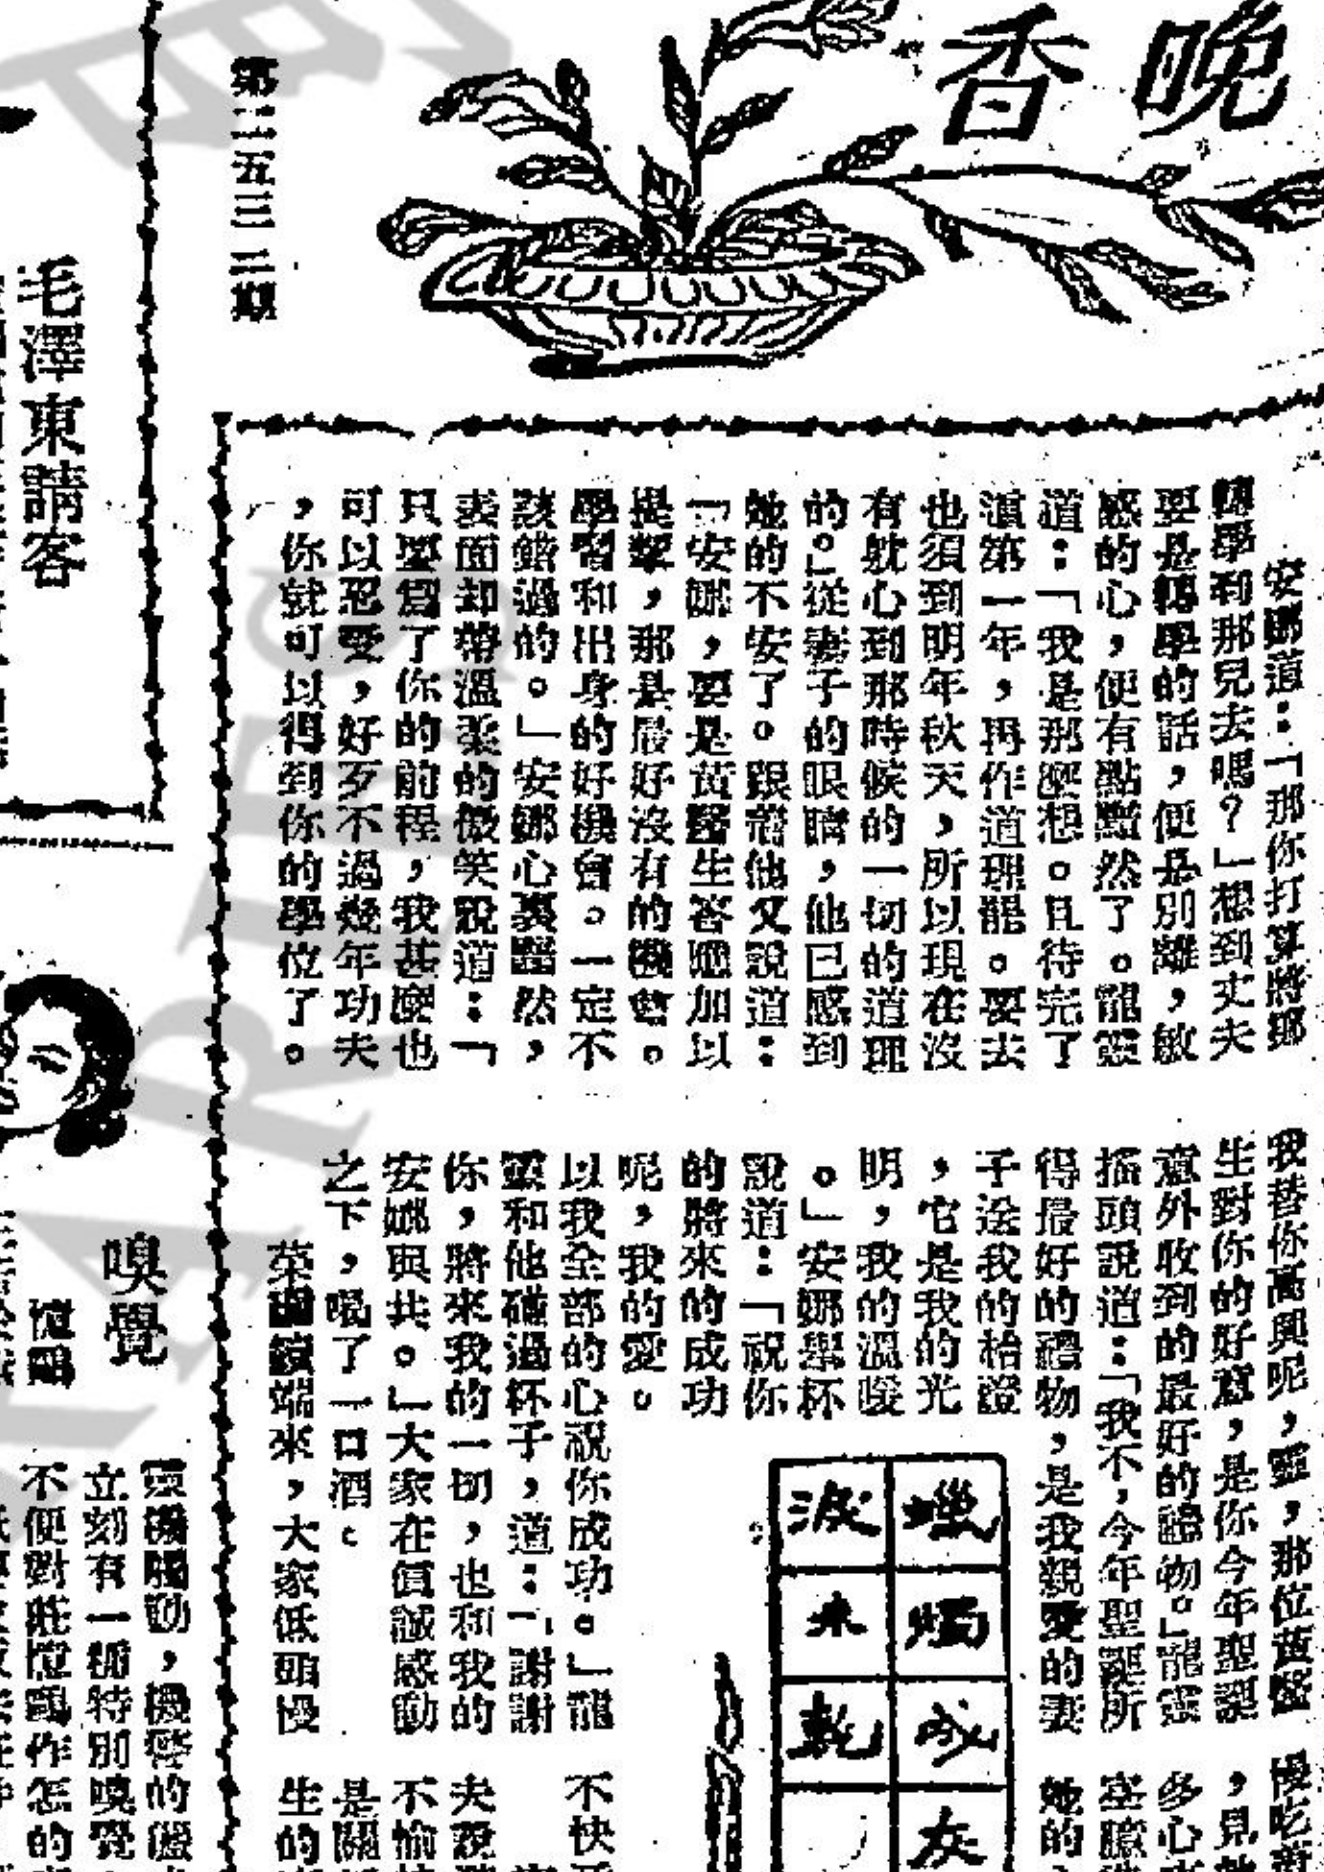 晚香
第二五三三期
安娜道：「那你打算將那
轉學到那兒去嗎？」想到丈夫
要是轉學的話，便是別離，敏
感的心，便有點黯然了。龍靈
道：「我是那麼想。且待完了
滬第一年，再作道理罷。要去
也須到明年秋天，所以現在沒
有躭心到那時候的一切的道理
的。」從妻子的眼睛，他已感到
她的不安了。跟着他又說道：
「安娜，要是黃醫生答應加以
提挈，那是最好沒有的機會。
學習和出身的好機會。一定不
該錯過的。」安娜心裏黯然，
表面却帶溫柔的微笑說道：「
只要爲了你的前程，我甚麼也
可以忍受，好歹不過幾年功夫
，你就可以得到你的學位了。
我替你高興呢，靈，那位黃醫
生對你的好意，是你今年聖誕
意外收到的最好的禮物。」龍靈
搖頭說道：「我不，今年聖誕所
得最好的禮物，是我親愛的妻
子送我的枱燈
，它是我的光
明，我的溫暖
。」安娜舉杯
說道：「祝你
的將來的成功
呢，我的愛。
以我全部的心祝你成功。」龍
靈和他碰過杯子，道：「謝謝
你，將來我的一切，也和我的
安娜與共。」大家在眞誠感動
之下，喝了一口酒。
菜 端來，大家低頭慢
蠟燭成灰
淚未乾
慢吃
，見
多心
她的
不快
夫說
不愉
是關
生的
毛澤東請客
嗅覺
靈 觸動，機警的
立刻有一種特別嗅覺
不便對莊 作怎的